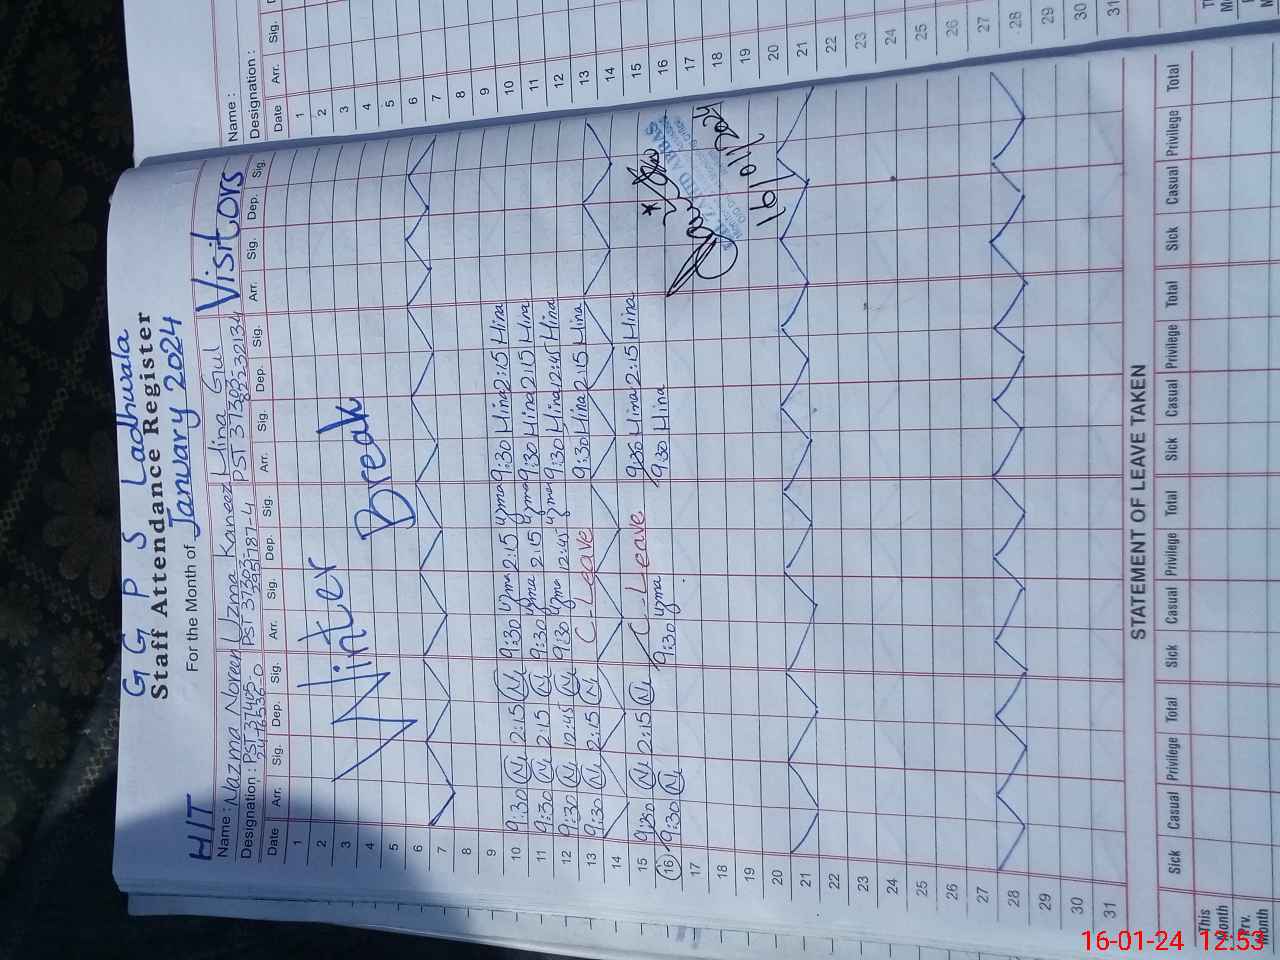 G G P S Ladhuwala
Staff Attendance Register
For the Month of January 2024
HIT
Name : Nazma Noreen Uzma Kaneez Hina Gul Visitors
Designation : PST 37405- PST 37303- PST 37303-
Date Arr. Sig. Dep. Sig. Arr. Sig. Dep. Sig. Arr. Sig. Dep. Sig. Arr. Sig. Dep. Sig.
1
2
3
4
5
6
Winter Break
7
8
9
10 9:30 2:15 9:30 uzma 2:15 uzma 9:30 Hina 2:15 Hina
11 9:30 2:15 9:30 uzma 2:15 uzma 9:30 Hina 2:15 Hina
12 9:30 12:45 9:30 uzma 12:45 uzma 9:30 Hina 12:45 Hina
13 9:30 2:15 C-Leave 9:30 Hina 2:15 Hina
14
15 9:30 2:15 C-Leave 9:30 Hina 2:15 Hina
16 9:30 9:30 uzma 9:30 Hina
16/01/2024
17
18
19
20
21
22
23
24
25
26
27
28
29
30
31
STATEMENT OF LEAVE TAKEN
Sick Casual Privilege Total Sick Casual Privilege Total Sick Casual Privilege Total Sick Casual Privilege Total
This Month
Prv. Month
Name :
Designation :
Date Arr. Sig.
1
2
3
4
5
6
7
8
9
10
11
12
13
14
15
16
17
18
19
20
21
22
23
24
25
26
27
28
29
30
31
16-01-24 12:53